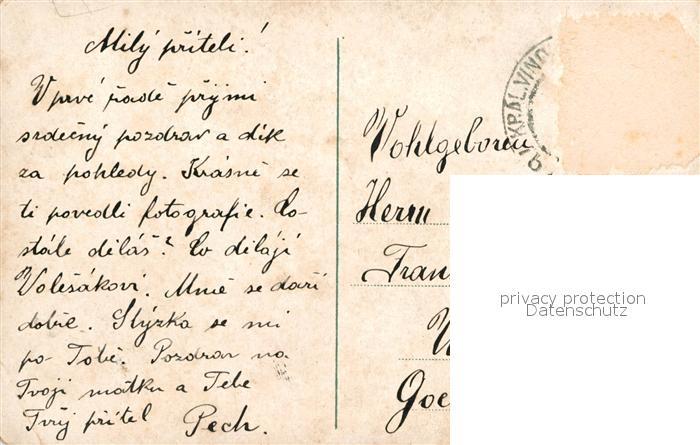 Milý příteli!
V prvé řadě přijmi
srdečný pozdrav a dík
za pohledy. Krásně se
ti povedli fotografie. Co
stále děláš? Co dělají
Volešákovi. Mně se daří
dobře. Stýzka se mi
po Tobě. Pozdrav na
Tvoji matku a Tebe
Tvůj přítel Pech.
KRÁL. VINO
Wohlgeboren
Herrn
Fran
Goe
privacy protection
Datenschutz